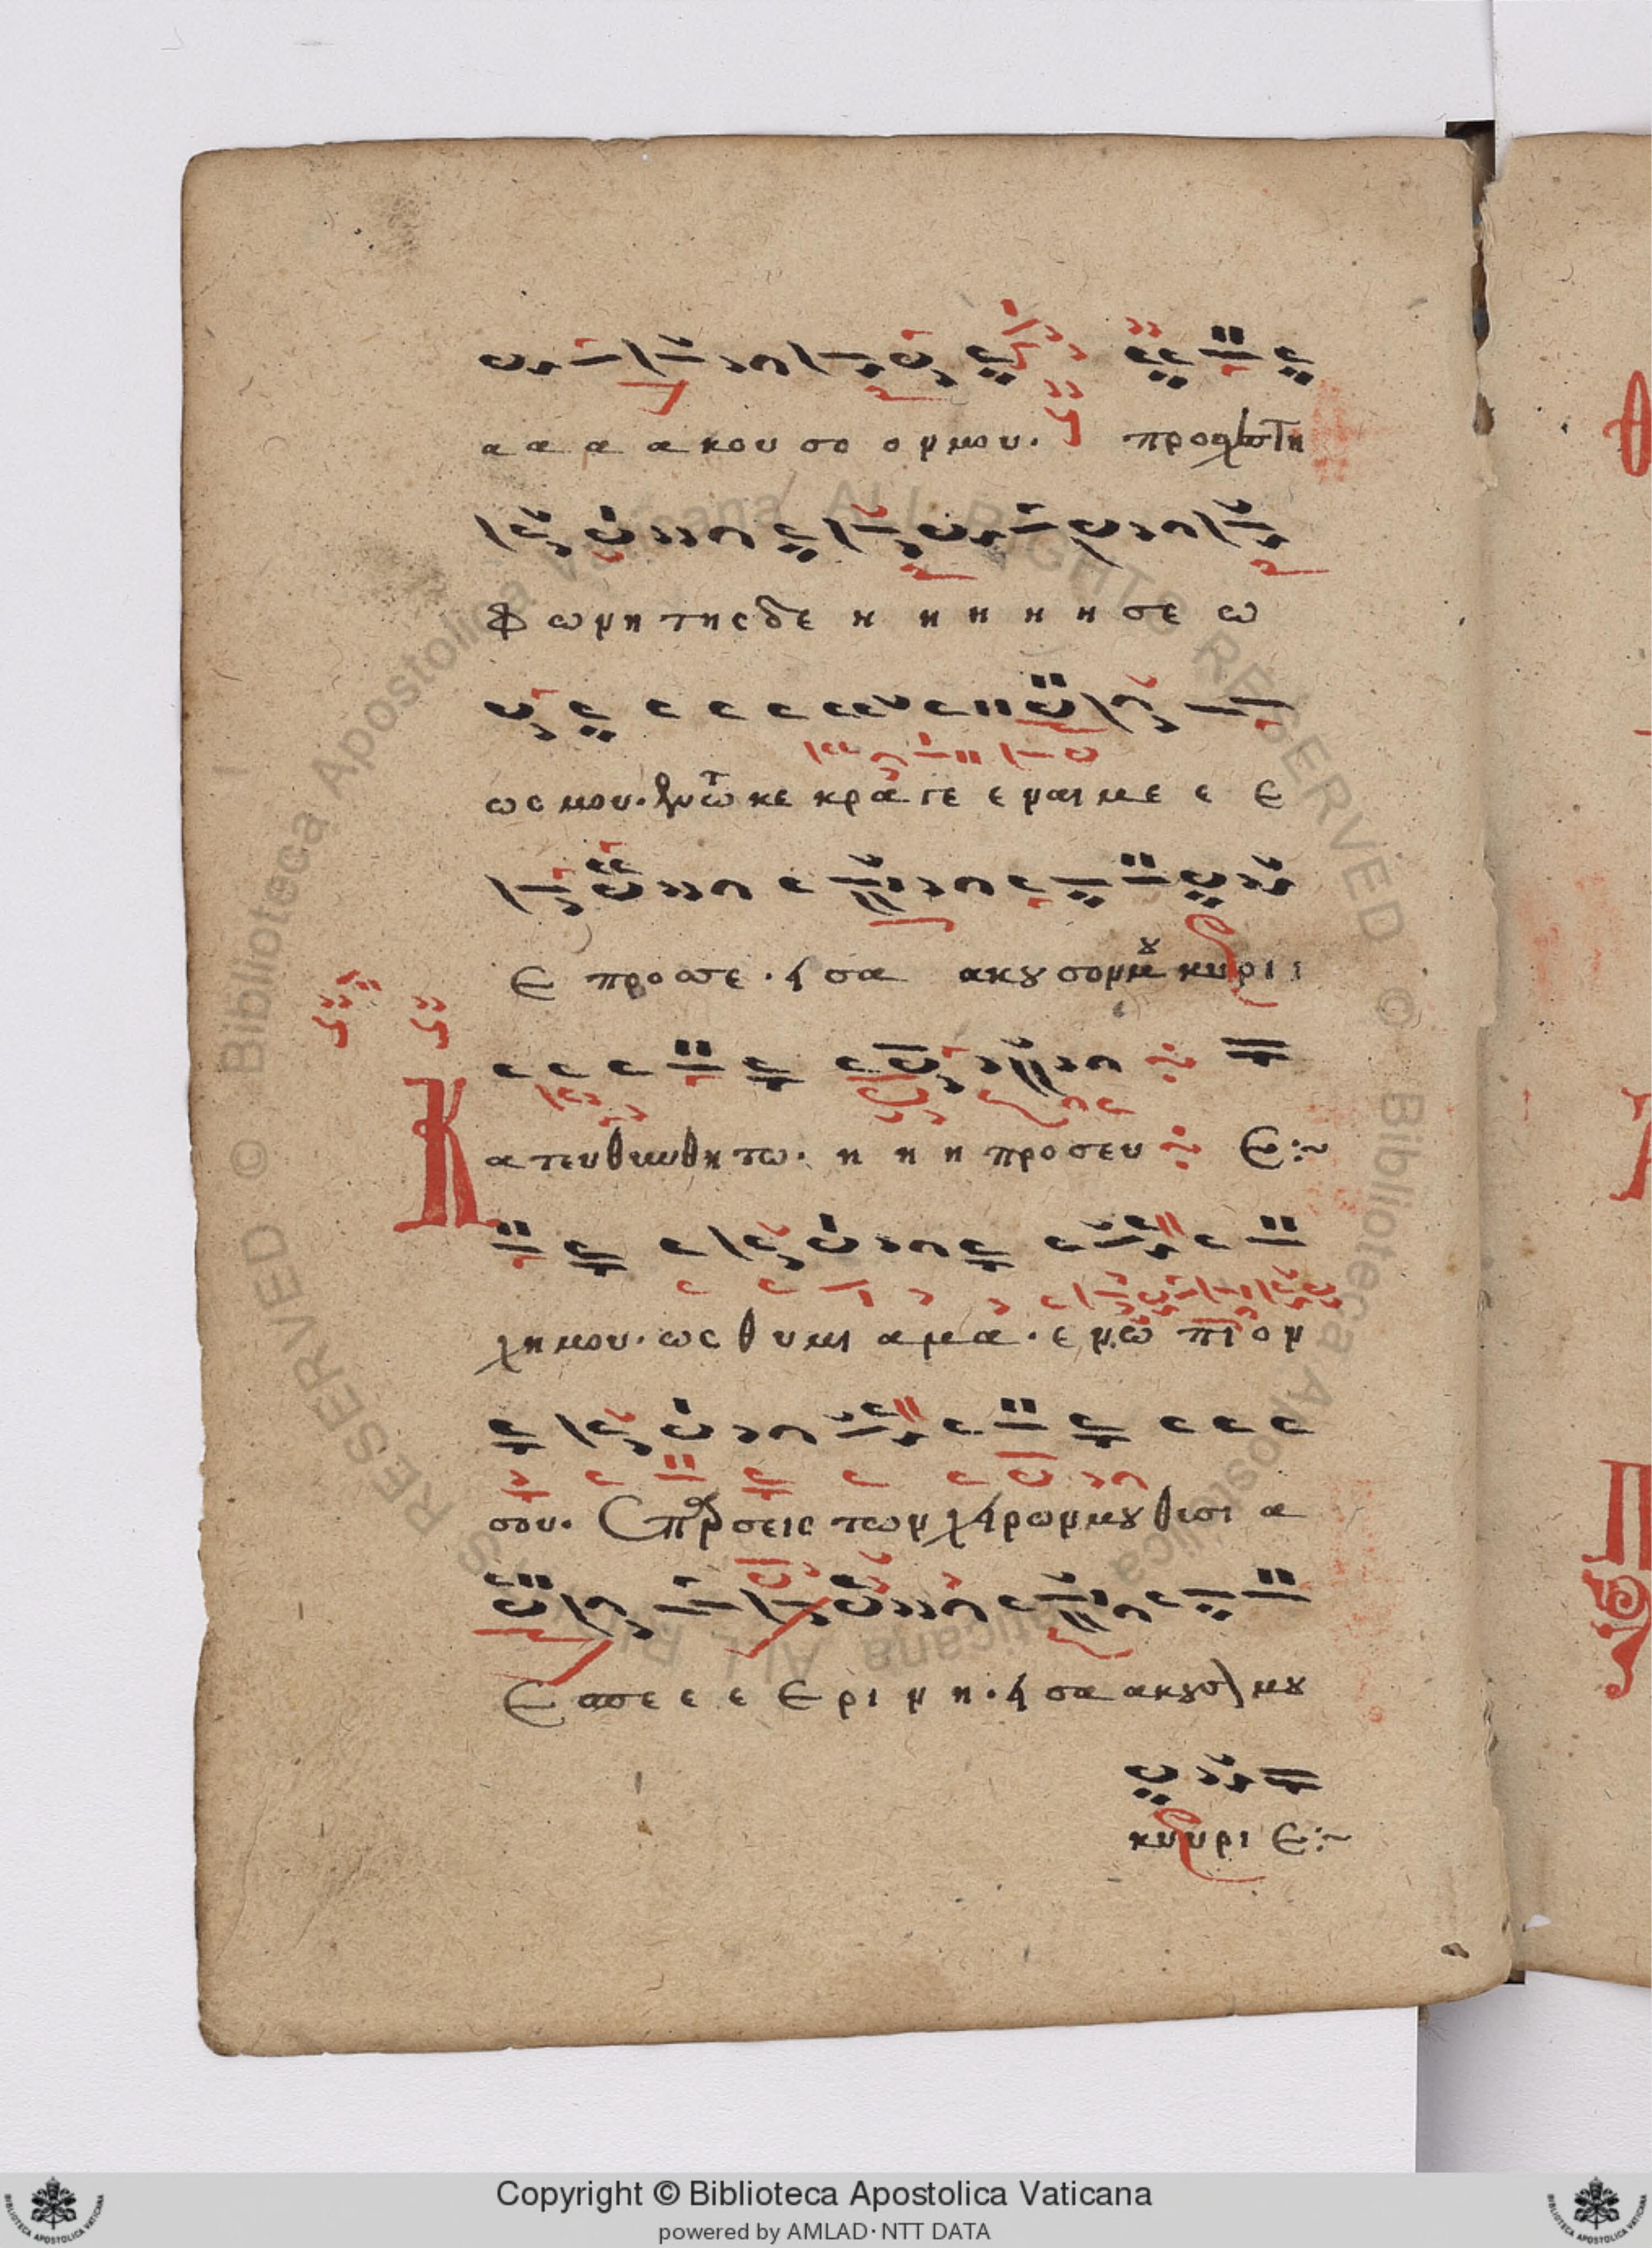 α α α α κου σο ο ρ μου. προσχες τη
φ ωνη της δε η η η η η σε ω
ως μου. εν τω κε κρα γε ε ναι με ε ε
ε προσσε. εισα ακȣ σον μȣ κυ ρι ι
Κ
α τευ θυνθη τω. η η η προσευ ε :~
χη μου. ως θ υ μι α μα. ε νω πι ο ν
σου. επαρσεις των χειρωνμȣ θυσι α
ε σπε ε ε ε ρι ν η. εισα ακȣσον μȣ
κυ υρι ε :~
Copyright © Biblioteca Apostolica Vaticana
powered by AMLAD·NTT DATA